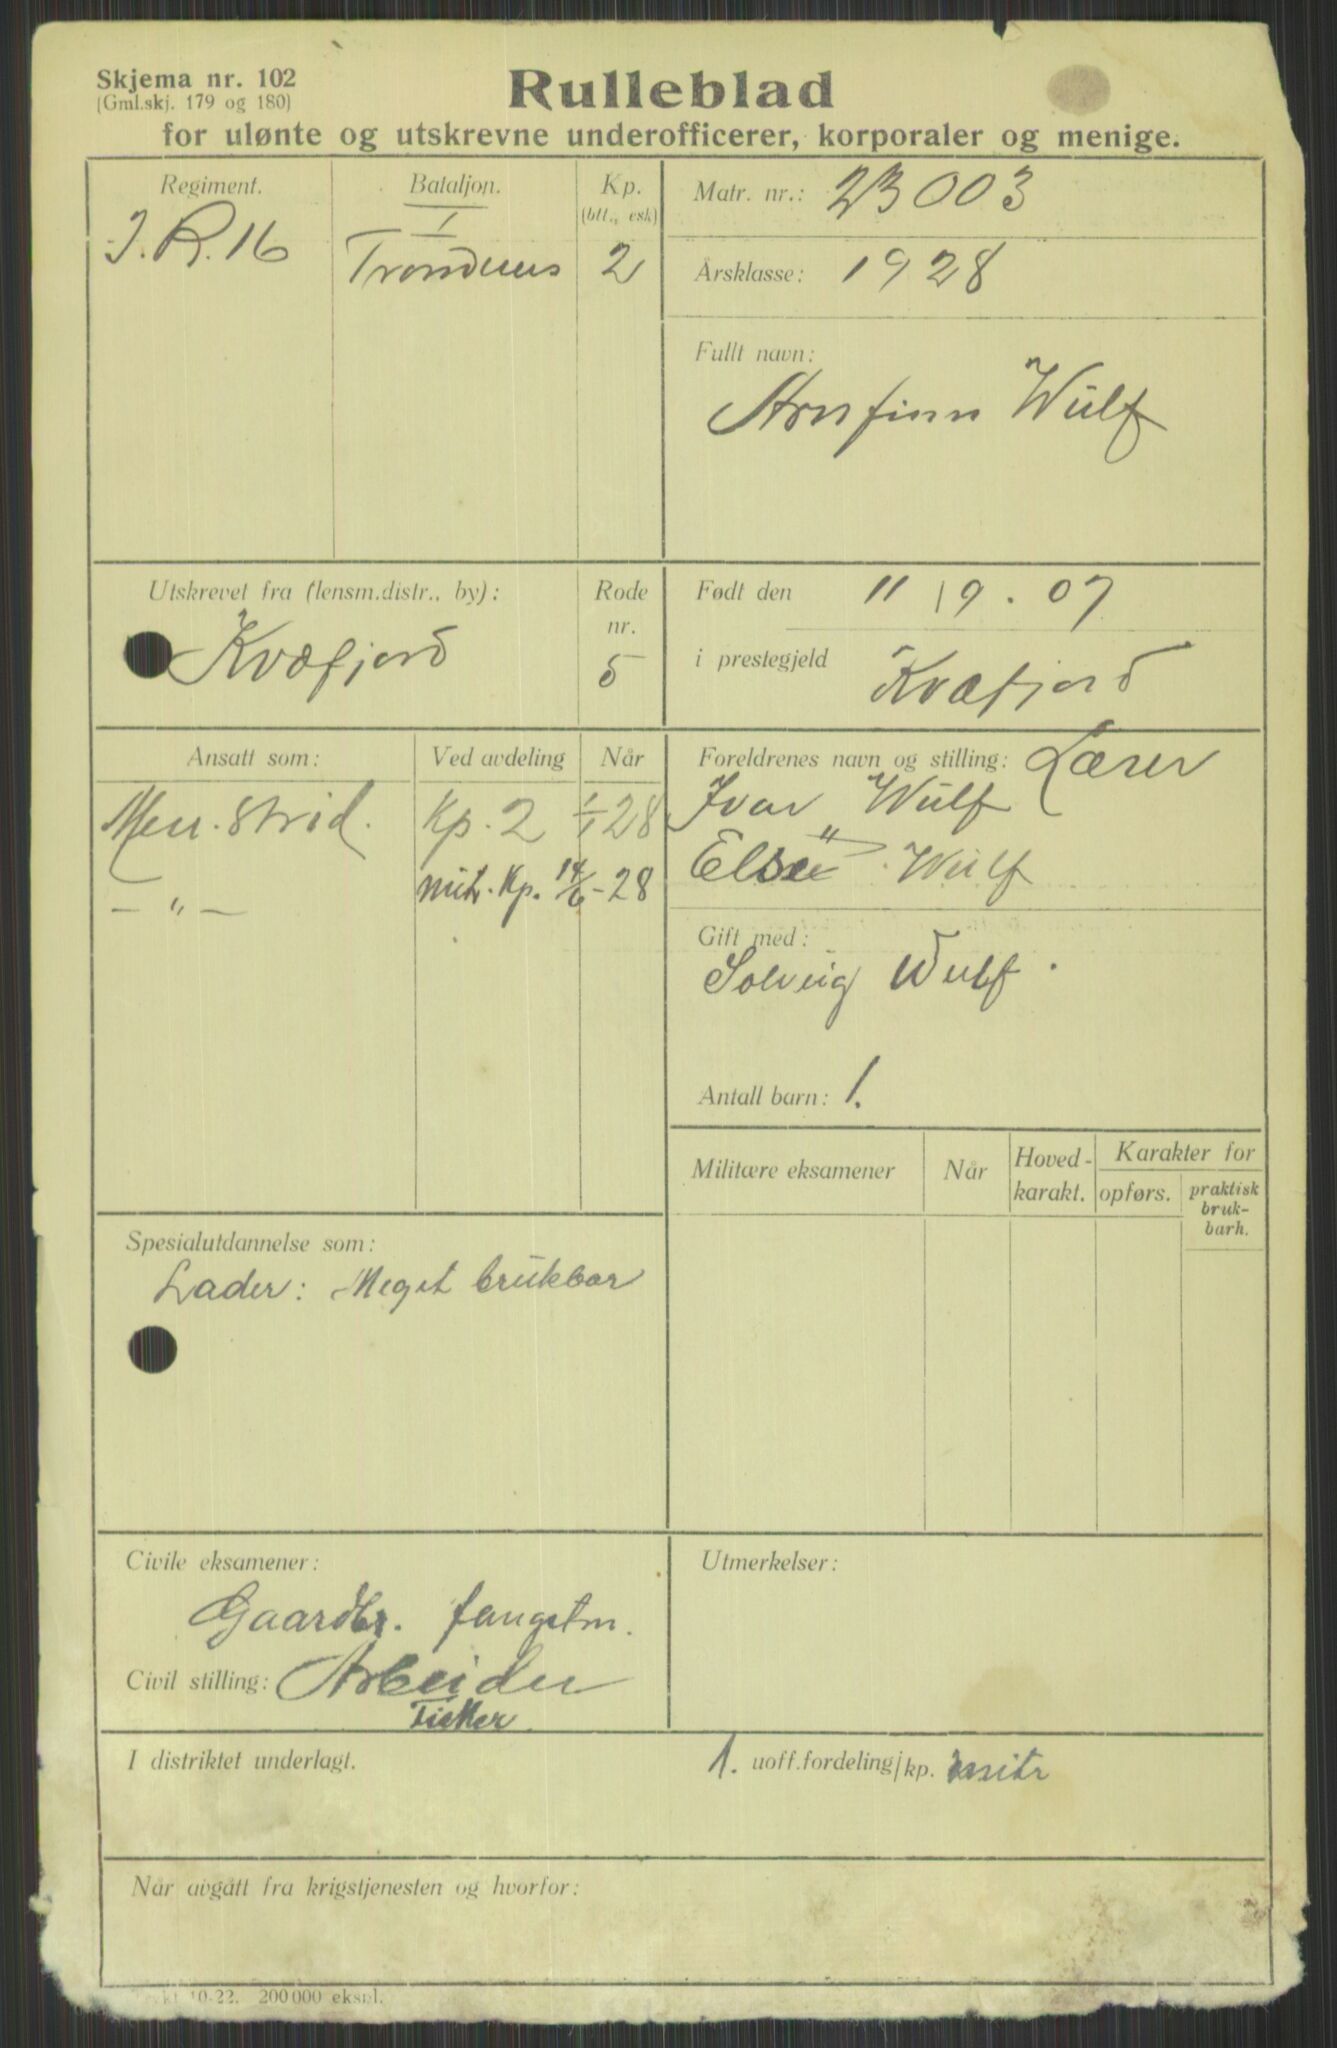 Skjema nr. 102
(Gml.skj. 179 og 180)
Rulleblad
for ulønte og utskrevne underofficerer, korporaler og menige.
Regiment.
I.R.16
Bataljon.
I
Trondenes
Kp.
(btt., esk)
2
Matr. nr.: 23003
Årsklasse: 1928
Fullt navn:
Arnfinn Wulf
Utskrevet fra (lensm.distr., by):
Kvæfjord
Rode
nr.
5
Født den 11/9.07
i prestegjeld Kvæfjord
Ansatt som: Ved avdeling Når
Men. strid. Kp. 2 1/1 28
— " — mitr. Kp. 14/6-28
Foreldrenes navn og stilling: Lærer
Ivar Wulf
Else " Wulf
Gift med:
Solveig Wulf.
Antall barn: 1.
Militære eksamener
Når
Hoved-
karakt.
Karakter for
opførs.
praktisk
bruk-
barh.
Spesialutdannelse som:
Lader: Meget brukbar
Civile eksamener:
Gaardbr. fangstm.
Civil stilling: Arbeider
Fisker
Utmerkelser:
I distriktet underlagt.
1. uoff.fordeling/kp. mitr
Når avgått fra krigstjenesten og hvorfor:
10-22. 200 000 ekspl.